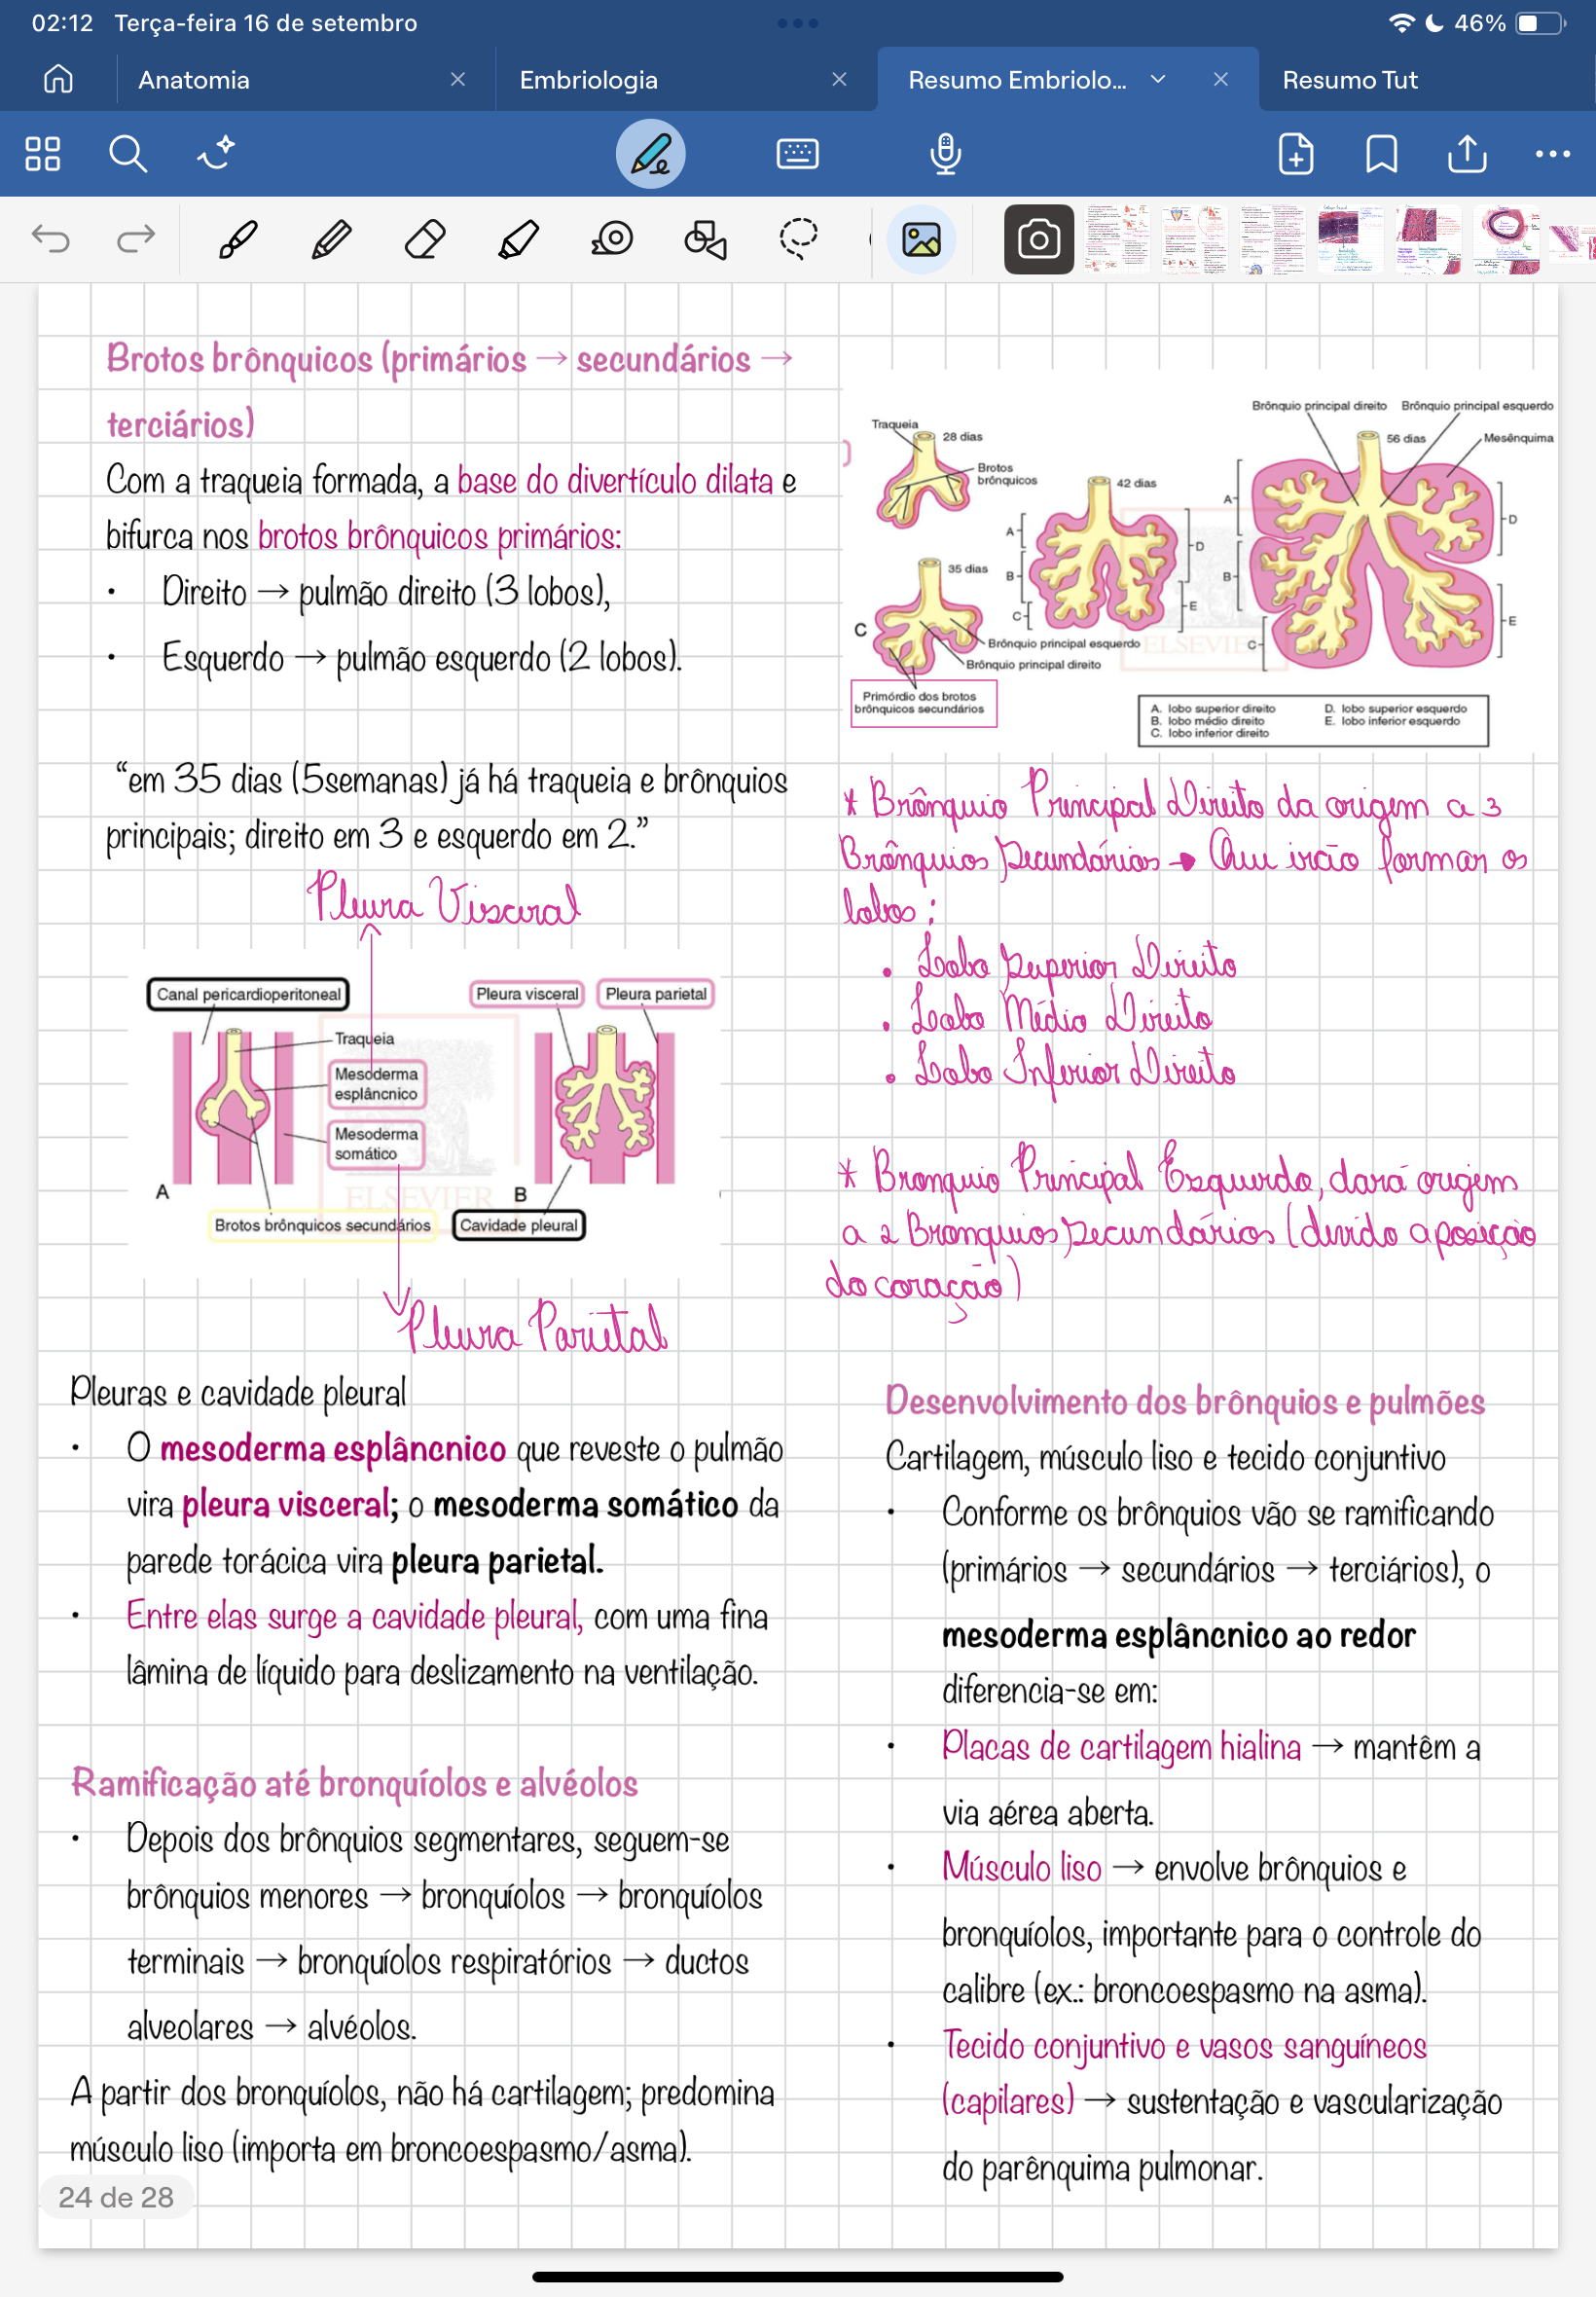 02:12 Terça-feira 16 de setembro
46%
Anatomia
Embriologia
Resumo Embriolo...
Resumo Tut
Brotos brônquicos (primários → secundários →
terciários)
Com a traqueia formada, a base do divertículo dilata e
bifurca nos brotos brônquicos primários:
• Direito → pulmão direito (3 lobos),
• Esquerdo → pulmão esquerdo (2 lobos).
“em 35 dias (5semanas) já há traqueia e brônquios
principais; direito em 3 e esquerdo em 2.”
Pleura Visceral
Canal pericardioperitoneal
Pleura visceral
Pleura parietal
Traqueia
Mesoderma
esplâncnico
Mesoderma
somático
A
B
ELSEVIER
Brotos brônquicos secundários
Cavidade pleural
Pleura Parietal
Pleuras e cavidade pleural
• O mesoderma esplâncnico que reveste o pulmão
vira pleura visceral; o mesoderma somático da
parede torácica vira pleura parietal.
• Entre elas surge a cavidade pleural, com uma fina
lâmina de líquido para deslizamento na ventilação.
Ramificação até bronquíolos e alvéolos
• Depois dos brônquios segmentares, seguem-se
brônquios menores → bronquíolos → bronquíolos
terminais → bronquíolos respiratórios → ductos
alveolares → alvéolos.
A partir dos bronquíolos, não há cartilagem; predomina
músculo liso (importa em broncoespasmo/asma).
24 de 28
Traqueia
28 dias
Brotos
brônquicos
35 dias
C
Brônquio principal esquerdo
Brônquio principal direito
Primórdio dos brotos
brônquicos secundários
42 dias
A
B
C
D
E
Brônquio principal direito
Brônquio principal esquerdo
56 dias
Mesênquima
A
B
C
D
E
ELSEVIE
A. lobo superior direito
B. lobo médio direito
C. lobo inferior direito
D. lobo superior esquerdo
E. lobo inferior esquerdo
* Brônquio Principal Direito da origem a 3
Brônquios Secundários → Que irão formar os
lobos:
• Lobo Superior Direito
• Lobo Médio Direito
• Lobo Inferior Direito
* Bronquio Principal Esquerdo, dará origem
a 2 Bronquios Secundários (devido a posição
do coração)
Desenvolvimento dos brônquios e pulmões
Cartilagem, músculo liso e tecido conjuntivo
• Conforme os brônquios vão se ramificando
(primários → secundários → terciários), o
mesoderma esplâncnico ao redor
diferencia-se em:
• Placas de cartilagem hialina → mantêm a
via aérea aberta.
• Músculo liso → envolve brônquios e
bronquíolos, importante para o controle do
calibre (ex.: broncoespasmo na asma).
• Tecido conjuntivo e vasos sanguíneos
(capilares) → sustentação e vascularização
do parênquima pulmonar.